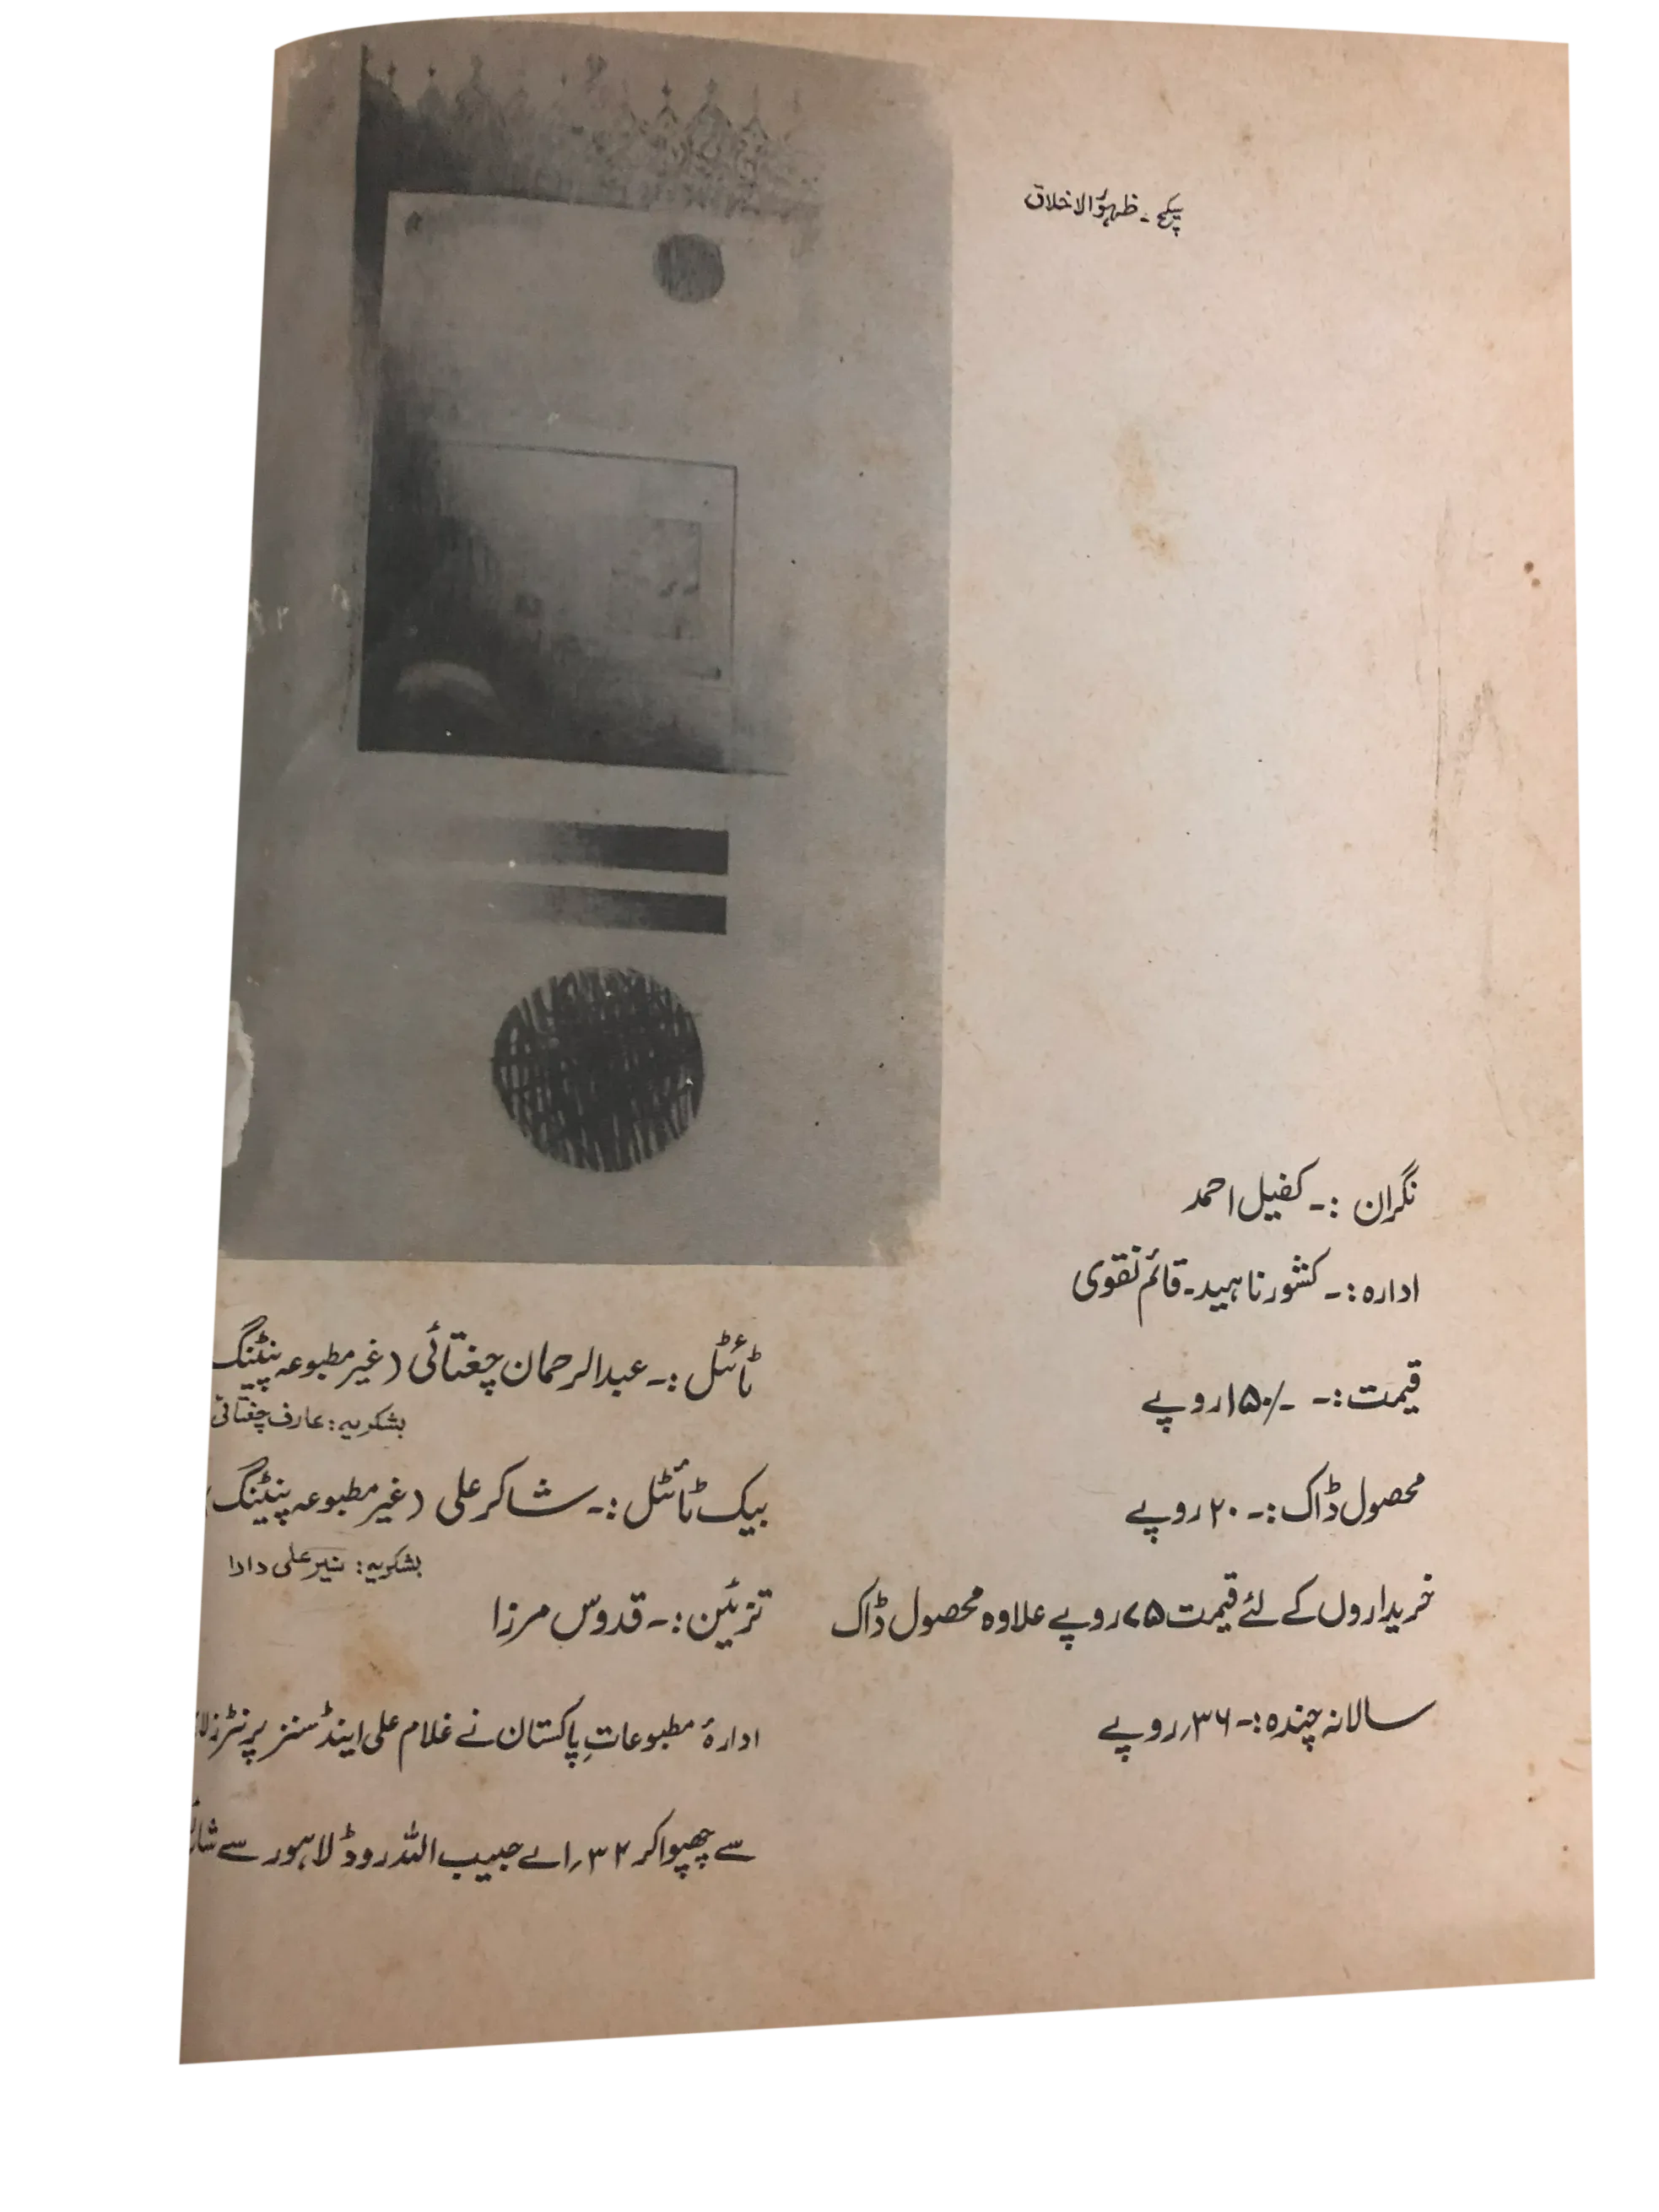 سکیچ ـ ظہورُ الاخلاق
نگران :ـ کفیل احمد
ادارہ :ـ کشور ناہید ـ قائم نقوی
قیمت :ـ ۱۵۰/ـ روپے
محصول ڈاک :ـ ۲۰ روپے
خریداروں کے لئے قیمت ۷۵ روپے علاوہ محصول ڈاک
سالانہ چندہ :ـ ۳۶ روپے
ٹائٹل :ـ عبدالرحمان چغتائی (غیر مطبوعہ پینٹنگ
بشکریہ : عارف چغتائی
بیک ٹائٹل :ـ شاکر علی (غیر مطبوعہ پینٹنگ)
بشکریہ : نیر علی دادا
تزئین :ـ قدوس مرزا
ادارۂ مطبوعاتِ پاکستان نے غلام علی اینڈ سنز پرنٹرز
سے چھپوا کر ۳۲؍اے حبیب اللہ روڈ لاہور سے